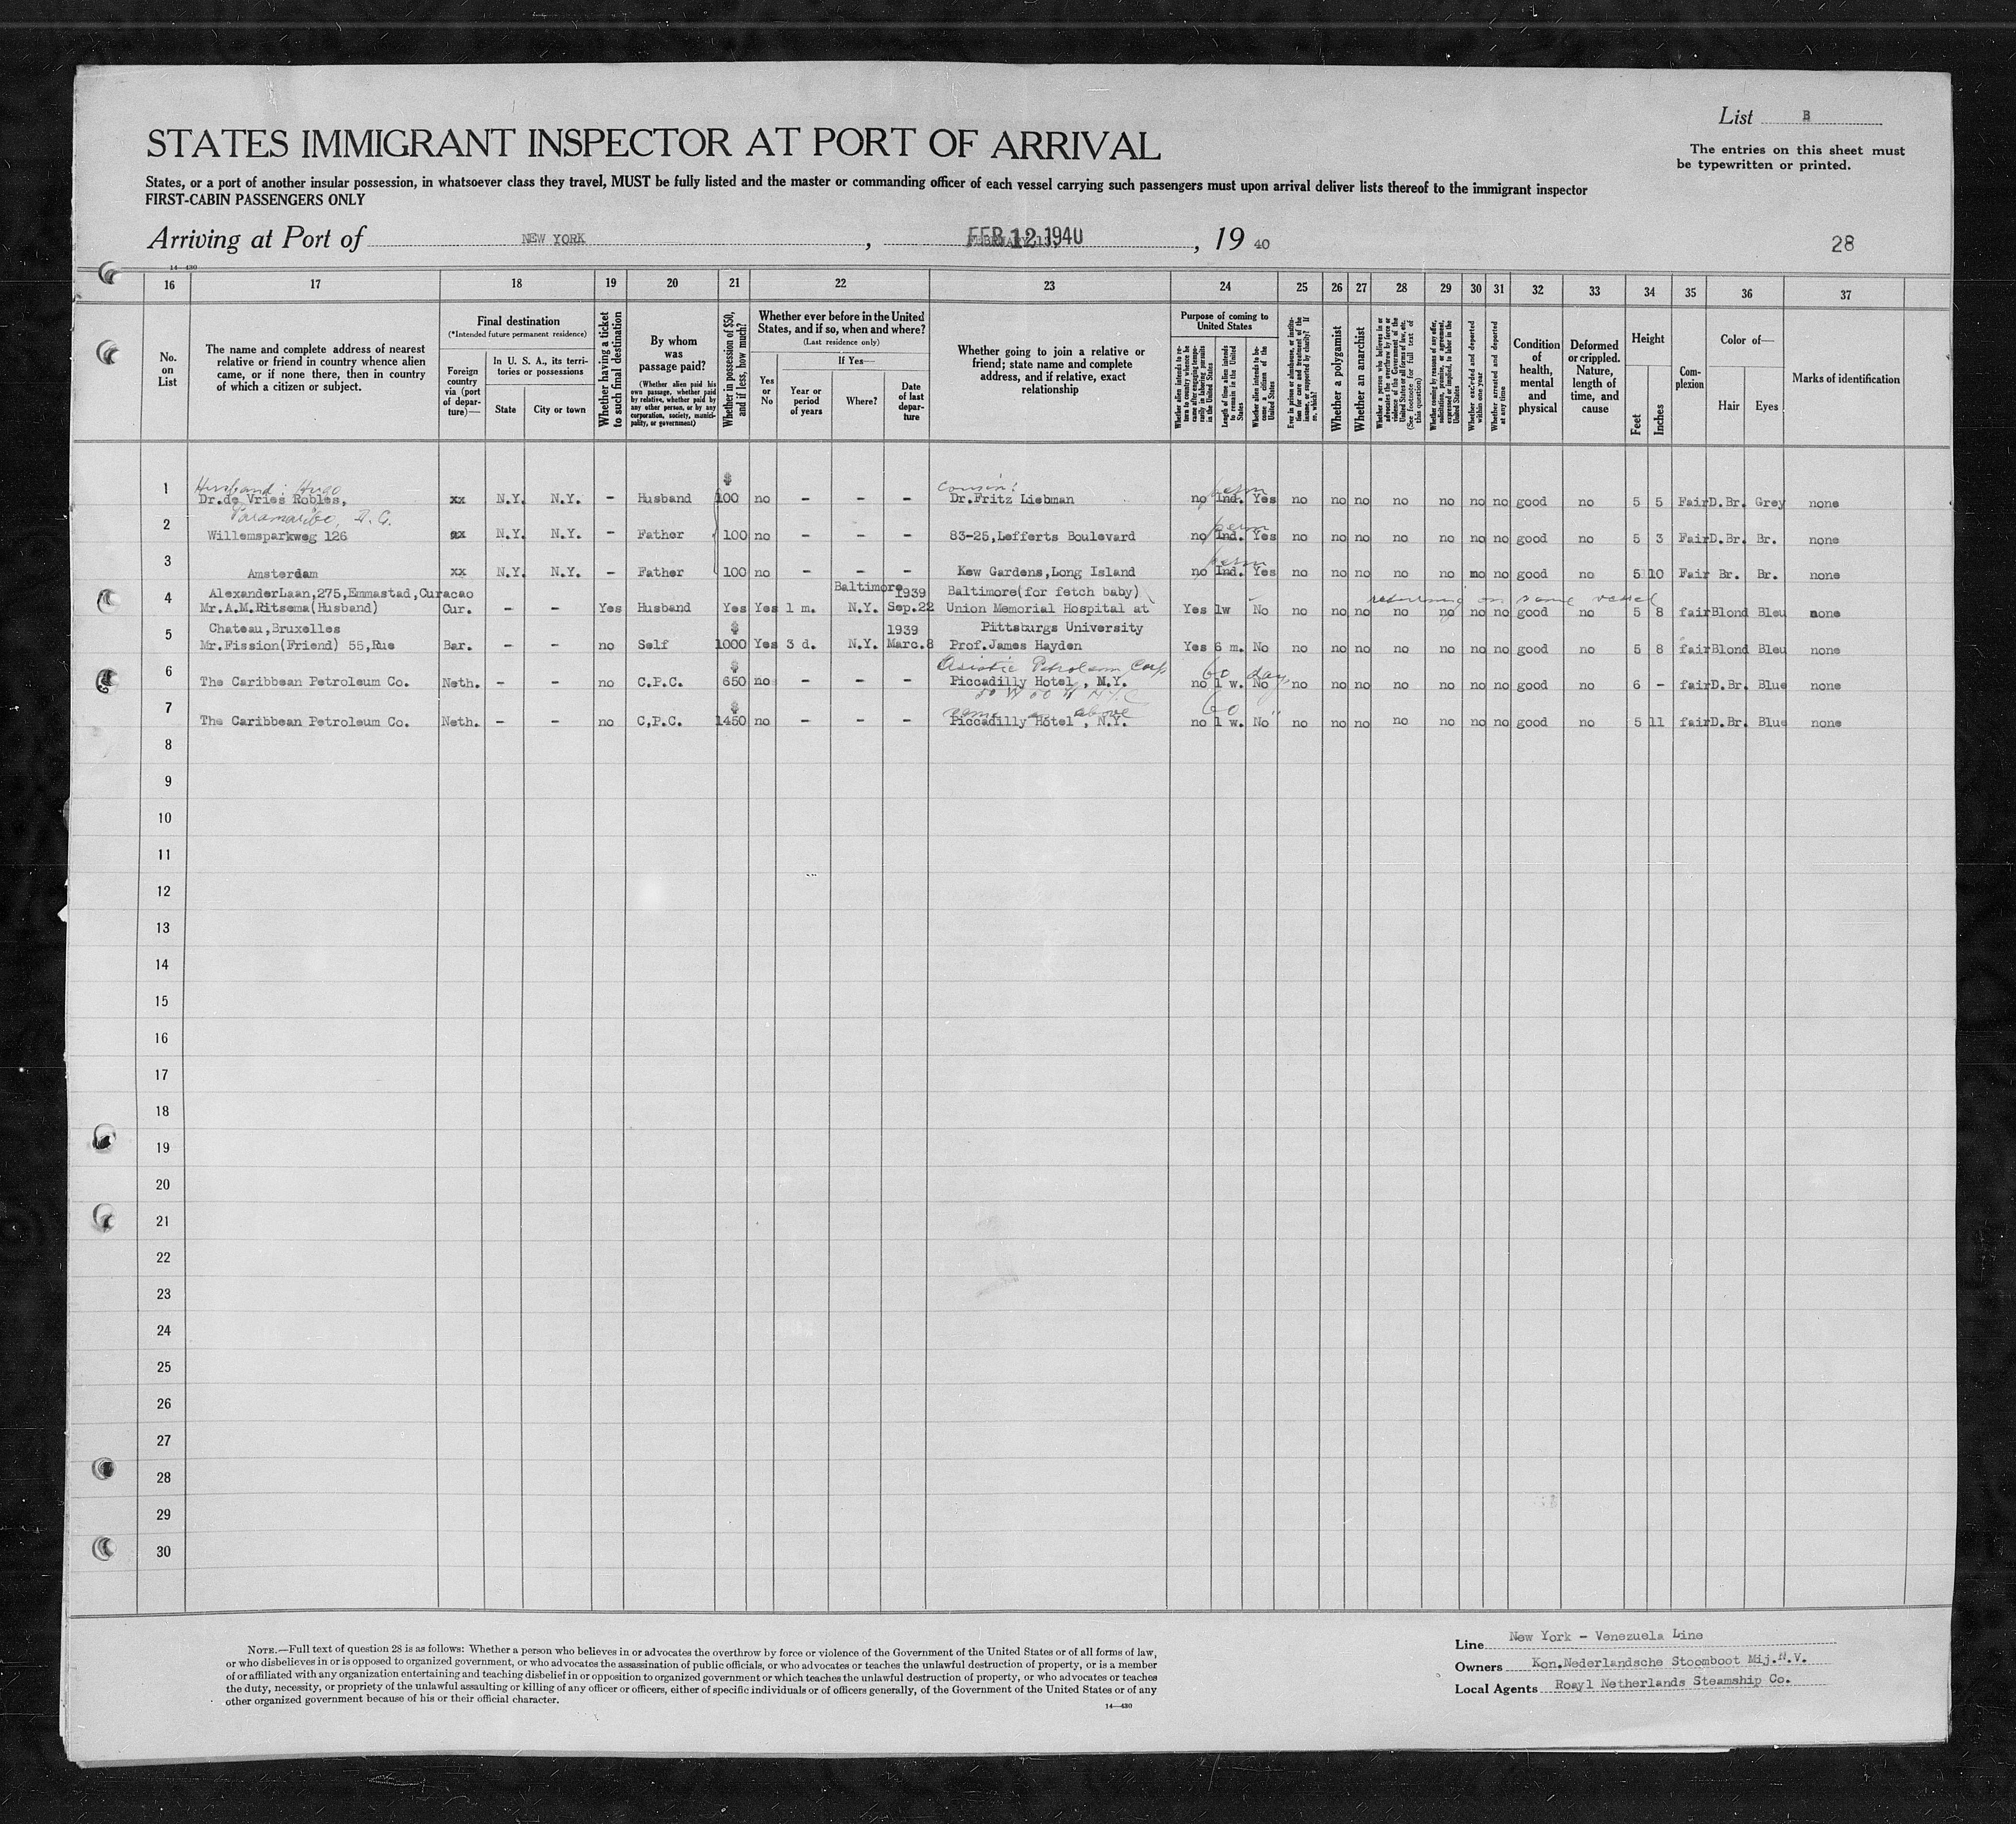 List B
STATES IMMIGRANT INSPECTOR AT PORT OF ARRIVAL
The entries on this sheet must
be typewritten or printed.
States, or a port of another insular possession, in whatsoever class they travel, MUST be fully listed and the master or commanding officer of each vessel carrying such passengers must upon arrival deliver lists thereof to the immigrant inspector
FIRST-CABIN PASSENGERS ONLY
Arriving at Port of NEW YORK, FEB 12 1940, 19 40
28
14—430
16 17 18 19 20 21 22 23 24 25 26 27 28 29 30 31 32 33 34 35 36 37
No. on List
The name and complete address of nearest relative or friend in country whence alien came, or if none there, then in country of which a citizen or subject.
Final destination
(*Intended future permanent residence)
Foreign country via (port of departure)—
In U. S. A., its territories or possessions
State
City or town
Whether having a ticket to such final destination
By whom was passage paid?
(Whether alien paid his own passage, whether paid by relative, whether paid by any other person, or by any corporation, society, municipality, or government)
Whether in possession of $50, and if less, how much?
Whether ever before in the United States, and if so, when and where?
(Last residence only)
If Yes—
Yes or No
Year or period of years
Where?
Date of last departure
Whether going to join a relative or friend; state name and complete address, and if relative, exact relationship
Purpose of coming to United States
Whether alien intends to return to country whence he came after engaging temporarily in laboring pursuits in the United States
Length of time alien intends to remain in the United States
Whether alien intends to become a citizen of the United States
Ever in prison or almshouse, or institution for care and treatment of the insane, or supported by charity? If so, which?
Whether a polygamist
Whether an anarchist
Whether a person who believes in or advocates the overthrow by force or violence of the Government of the United States or all forms of law, etc. (See footnote for full text of this question)
Whether coming by reason of any offer, solicitation, promise, or agreement, expressed or implied, to labor in the United States
Whether excluded and deported within one year
Whether arrested and deported at any time
Condition of health, mental and physical
Deformed or crippled. Nature, length of time, and cause
Height
Feet
Inches
Complexion
Color of—
Hair
Eyes
Marks of identification
Husband: Hugo cousin: perm
1 Dr.de Vries Robles, xx N.Y. N.Y. - Husband $ 100 no - - - Dr.Fritz Liebman no Ind. Yes no no no no no no no good no 5 5 Fair D.Br. Grey none
Paramaribo, D. G. perm
2 Willemsparkweg 126 xx N.Y. N.Y. - Father 100 no - - - 83-25,Lefferts Boulevard no Ind. Yes no no no no no no no good no 5 3 Fair D.Br. Br. none
perm
3 Amsterdam xx N.Y. N.Y. - Father 100 no - - - Kew Gardens,Long Island no Ind. Yes no no no no no no no good no 5 10 Fair Br. Br. none
AlexanderLaan,275,Emmastad,Curacao Baltimore 1939 Baltimore(for fetch baby) returning on same vessel
4 Mr.A.M.Ritsema(Husband) Cur. - - Yes Husband Yes Yes 1 m. N.Y. Sep.22 Union Memorial Hospital at Yes 1w No no no no no no no no good no 5 8 fair Blond Bleu none
Chateau,Bruxelles $ 1939 Pittsburgs University
5 Mr.Fission(Friend) 55,Rue Bar. - - no Self 1000 Yes 3 d. N.Y. Marc.8 Prof.James Hayden Yes 6 m. No no no no no no no no good no 5 8 fair Blond Bleu none
$ Asiatic Petroleum Corp 60 days
6 The Caribbean Petroleum Co. Neth. - - no C.P.C. 650 no - - - Piccadilly Hotel, N.Y. no 1 w. No no no no no no no no good no 6 - fair D.Br. Blue none
50 W 50 N.Y.C
$ same as above 60 "
7 The Caribbean Petroleum Co. Neth. - - no C,P.C. 1450 no - - - Piccadilly Hotel, N.Y. no 1 w. No no no no no no no no good no 5 11 fair D.Br. Blue none
8
9
10
11
12
13
14
15
16
17
18
19
20
21
22
23
24
25
26
27
28
29
30
NOTE.—Full text of question 28 is as follows: Whether a person who believes in or advocates the overthrow by force or violence of the Government of the United States or of all forms of law,
or who disbelieves in or is opposed to organized government, or who advocates the assassination of public officials, or who advocates or teaches the unlawful destruction of property, or is a member
of or affiliated with any organization entertaining and teaching disbelief in or opposition to organized government or which teaches the unlawful destruction of property, or who advocates or teaches
the duty, necessity, or propriety of the unlawful assaulting or killing of any officer or officers, either of specific individuals or of officers generally, of the Government of the United States or of any
other organized government because of his or their official character.
14—430
Line New York - Venezuela Line
Owners Kon.Nederlandsche Stoomboot Mij.N.V.
Local Agents Roayl Netherlands Steamship Co.